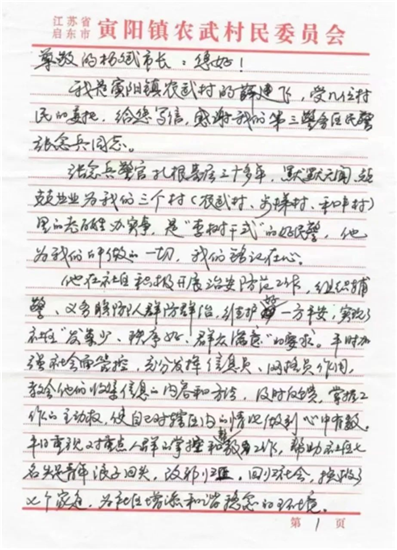 江苏省
启东市 寅阳镇农武村民委员会
尊敬的杨斌市长：您好！
我是寅阳镇农武村的薛建飞，受几位村
民的委托，给您写信，感谢我们第三警务区民警
张念兵同志。
张念兵警官扎根基层三十多年，默默无闻、兢
兢业业为我们三个村（农武村、村、和平村）
里的老百姓办实事，是“式”的好民警，他
为我们所做的一切，我们铭记在心。
他在社区积极开展治安防范工作，组织辅
警、义务联防队人群防群治，维护一方平安，实现了
社区“发案少、秩序好、群众满意”的要求。平时加
强社会面管控，充分发挥信息员、网格员作用，
教会他们收集信息的内容和方法，及时反馈，掌握工
作的主动权，使自己对辖区内的情况做到心中有数。
平时重视对重点人群的掌控和教育工作，帮助社区七
名失足青年浪子回头，改邪归正，回归社会，挽救了
七个家庭，为社区增添和谐稳定的环境。
第 1 页